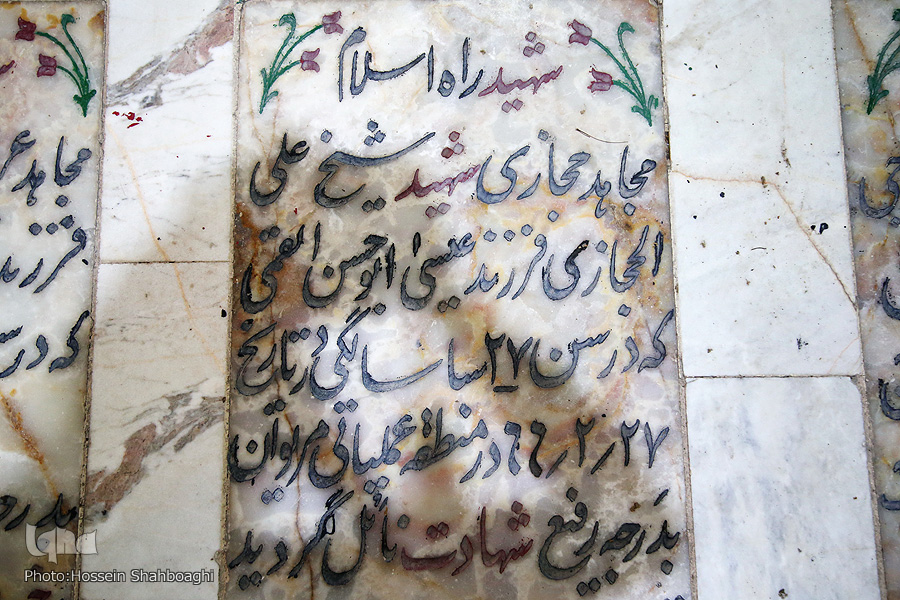 شهید راه اسلام
مجاهد حجازی شهید شیخ علی
الحجازی فرزند عیسی ابوحسن القمی
که در سن ۲۷ سالگی در تاریخ
۲۷ ر ۲ ر ۶۶ در منطقه عملیاتی مریوان
بدرجه رفیع شهادت نائل گردید
مجاهد
فرزند
که در
iqna
Photo:Hossein Shahboaghi